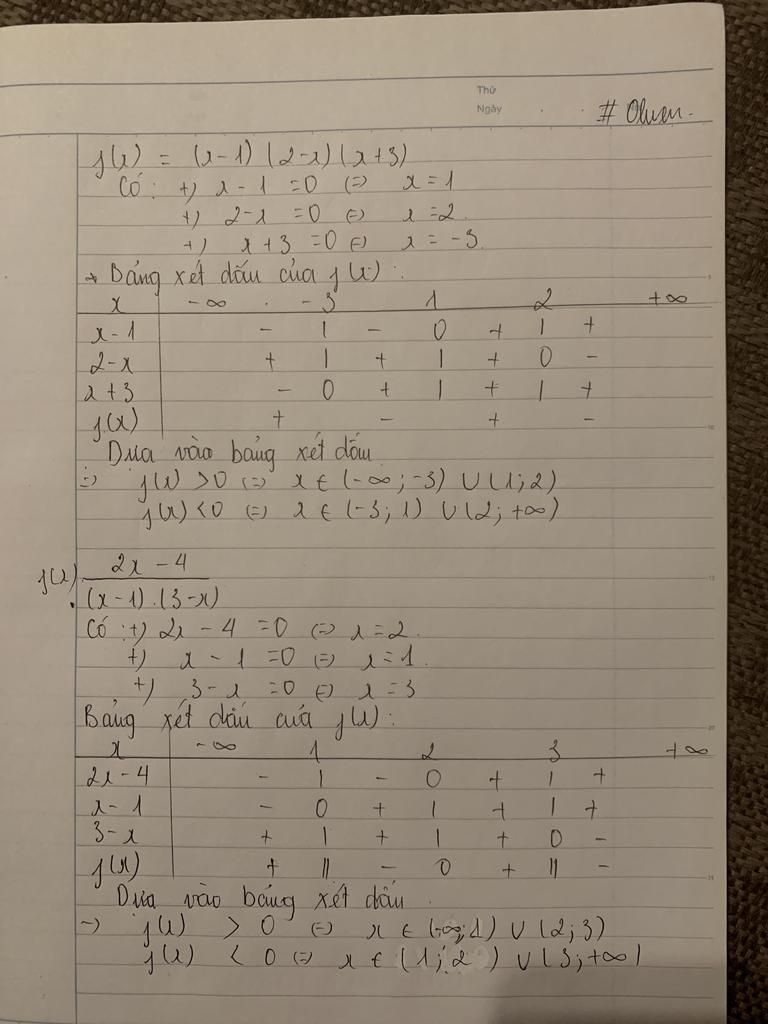 Thứ
Ngày . . # Olwen.
f(x) = (x-1) (2-x) (x+3)
Có: +) x-1 =0 (=) x=1
+) 2-x =0 (=) x=2.
+) x+3 =0 (=) x = -3.
→ Bảng xét dấu của f(x):
x -∞ -3 1 2 +∞
x-1 - | - 0 + | +
2-x + | + | + 0 -
x+3 - 0 + | + | +
f(x) + - + -
Dựa vào bảng xét dấu
=) f(x) >0 (=) x ∈ (-∞; -3) ∪ (1; 2)
f(x) <0 (=) x ∈ (-3; 1) ∪ (2; +∞)
2x -4
f(x)
(x-1).(3-x)
Có :+) 2x-4 =0 (=) x=2.
+) x-1 =0 (=) x=1.
+) 3-x =0 (=) x=3
Bảng xét dấu của f(x):
x -∞ 1 2 3 +∞
2x-4 - | - 0 + | +
x-1 - 0 + | + | +
3-x + | + | + 0 -
f(x) + || - 0 + || -
Dựa vào bảng xét dấu.
=) f(x) > 0 (=) x ∈ (-∞; 1) ∪ (2; 3)
f(x) < 0 (=) x ∈ (1; 2) ∪ (3; +∞)